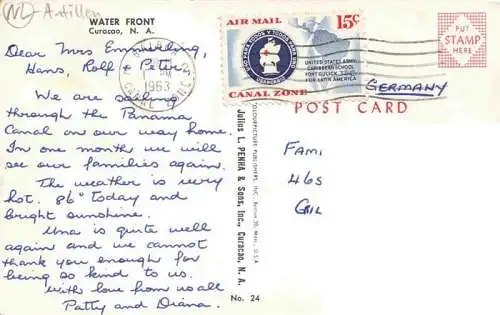 (NL) Antillen
WATER FRONT
Curacao, N. A.
Dear Mrs
Hans, Rolf & Peter,
We are sailing
through the Panama
Canal on our way home.
In one month we will
see our families again.
The weather is very
hot. 86° today and
bright sunshine.
Una is quite well
again and we cannot
thank you enough for
being so kind to us.
with love from us all
Patty and Diana.
PM
1963
AIR MAIL 15c
UNITED STATES ARMY
CARIBBEAN SCHOOL
FORT GULICK, C.Z.
FOR LATIN AMERICA
CANAL ZONE
PUT
STAMP
HERE
Germany
POST CARD
Fami
465
COLOURPICTURE PUBLISHERS, INC., Boston 30, Mass., U.S.A.
Julius L. PENHA & Sons, Inc., Curacao, N. A.
No. 24